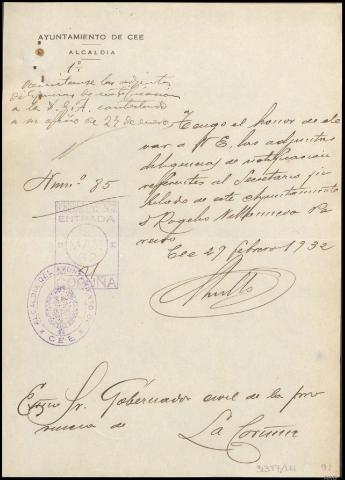 AYUNTAMIENTO DE CEE
ALCALDIA
1º
Remítanse las adjuntas
diligencias de notificacion
a la D.G.A. contestando
a su oficio de 23 de enero
Tengo el honor de ele
var a V E. las adjuntas
diligencias de notificacion
referentes al Secretario ju
bilado de este Ayuntamiento
D Rogelio
Cee 29 febrero 1932
Num.º 85
ENTRADA
CORUÑA
ALCALDIA DEL AYUNTAMIENTO DE
CEE
Excmo Sr. Gobernador civil de la pro
vincia de La Coruña